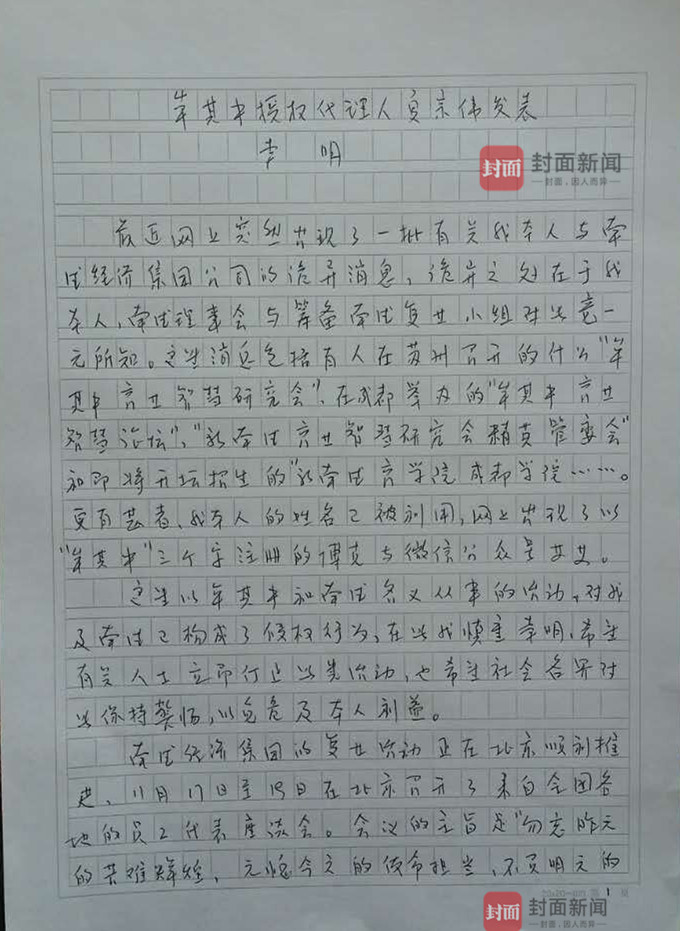 牟其中授权代理人夏宗伟发表
声明
封面新闻
封面，因人而异
最近网上突然出现了一批有关我本人与南
德经济集团公司的诡异消息，诡异之处在于我
本人、南德理事会与筹备南德复业小组对此竟一
无所知。这些消息包括有人在苏州召开的什么“牟
其中商业智慧研究会”、在成都举办的“牟其中商业
智慧论坛”、“新南德商业智慧研究会精英管委会”
和即将开坛招生的“新南德商学院成都学院……。
更有甚者，我本人的姓名已被利用，网上出现了以
“牟其中”三个字注册的博克与微信公众号
这些以牟其中和南德名义从事的活动，对我
及南德已构成了侵权行为，在此我慎重声明，希望
有关人士立即停止此类活动，也希望社会各界对
此保持警惕，以免危及本人利益。
南德经济集团的复业活动正在北京顺利推
进，11月17日至19日在北京召开了来自全国各
地的员工代表座谈会。会议的主旨是“勿忘昨天
的苦难辉煌，无愧今天的使命担当，不负明天的
20×20=400 第1页
封面新闻
封面，因人而异